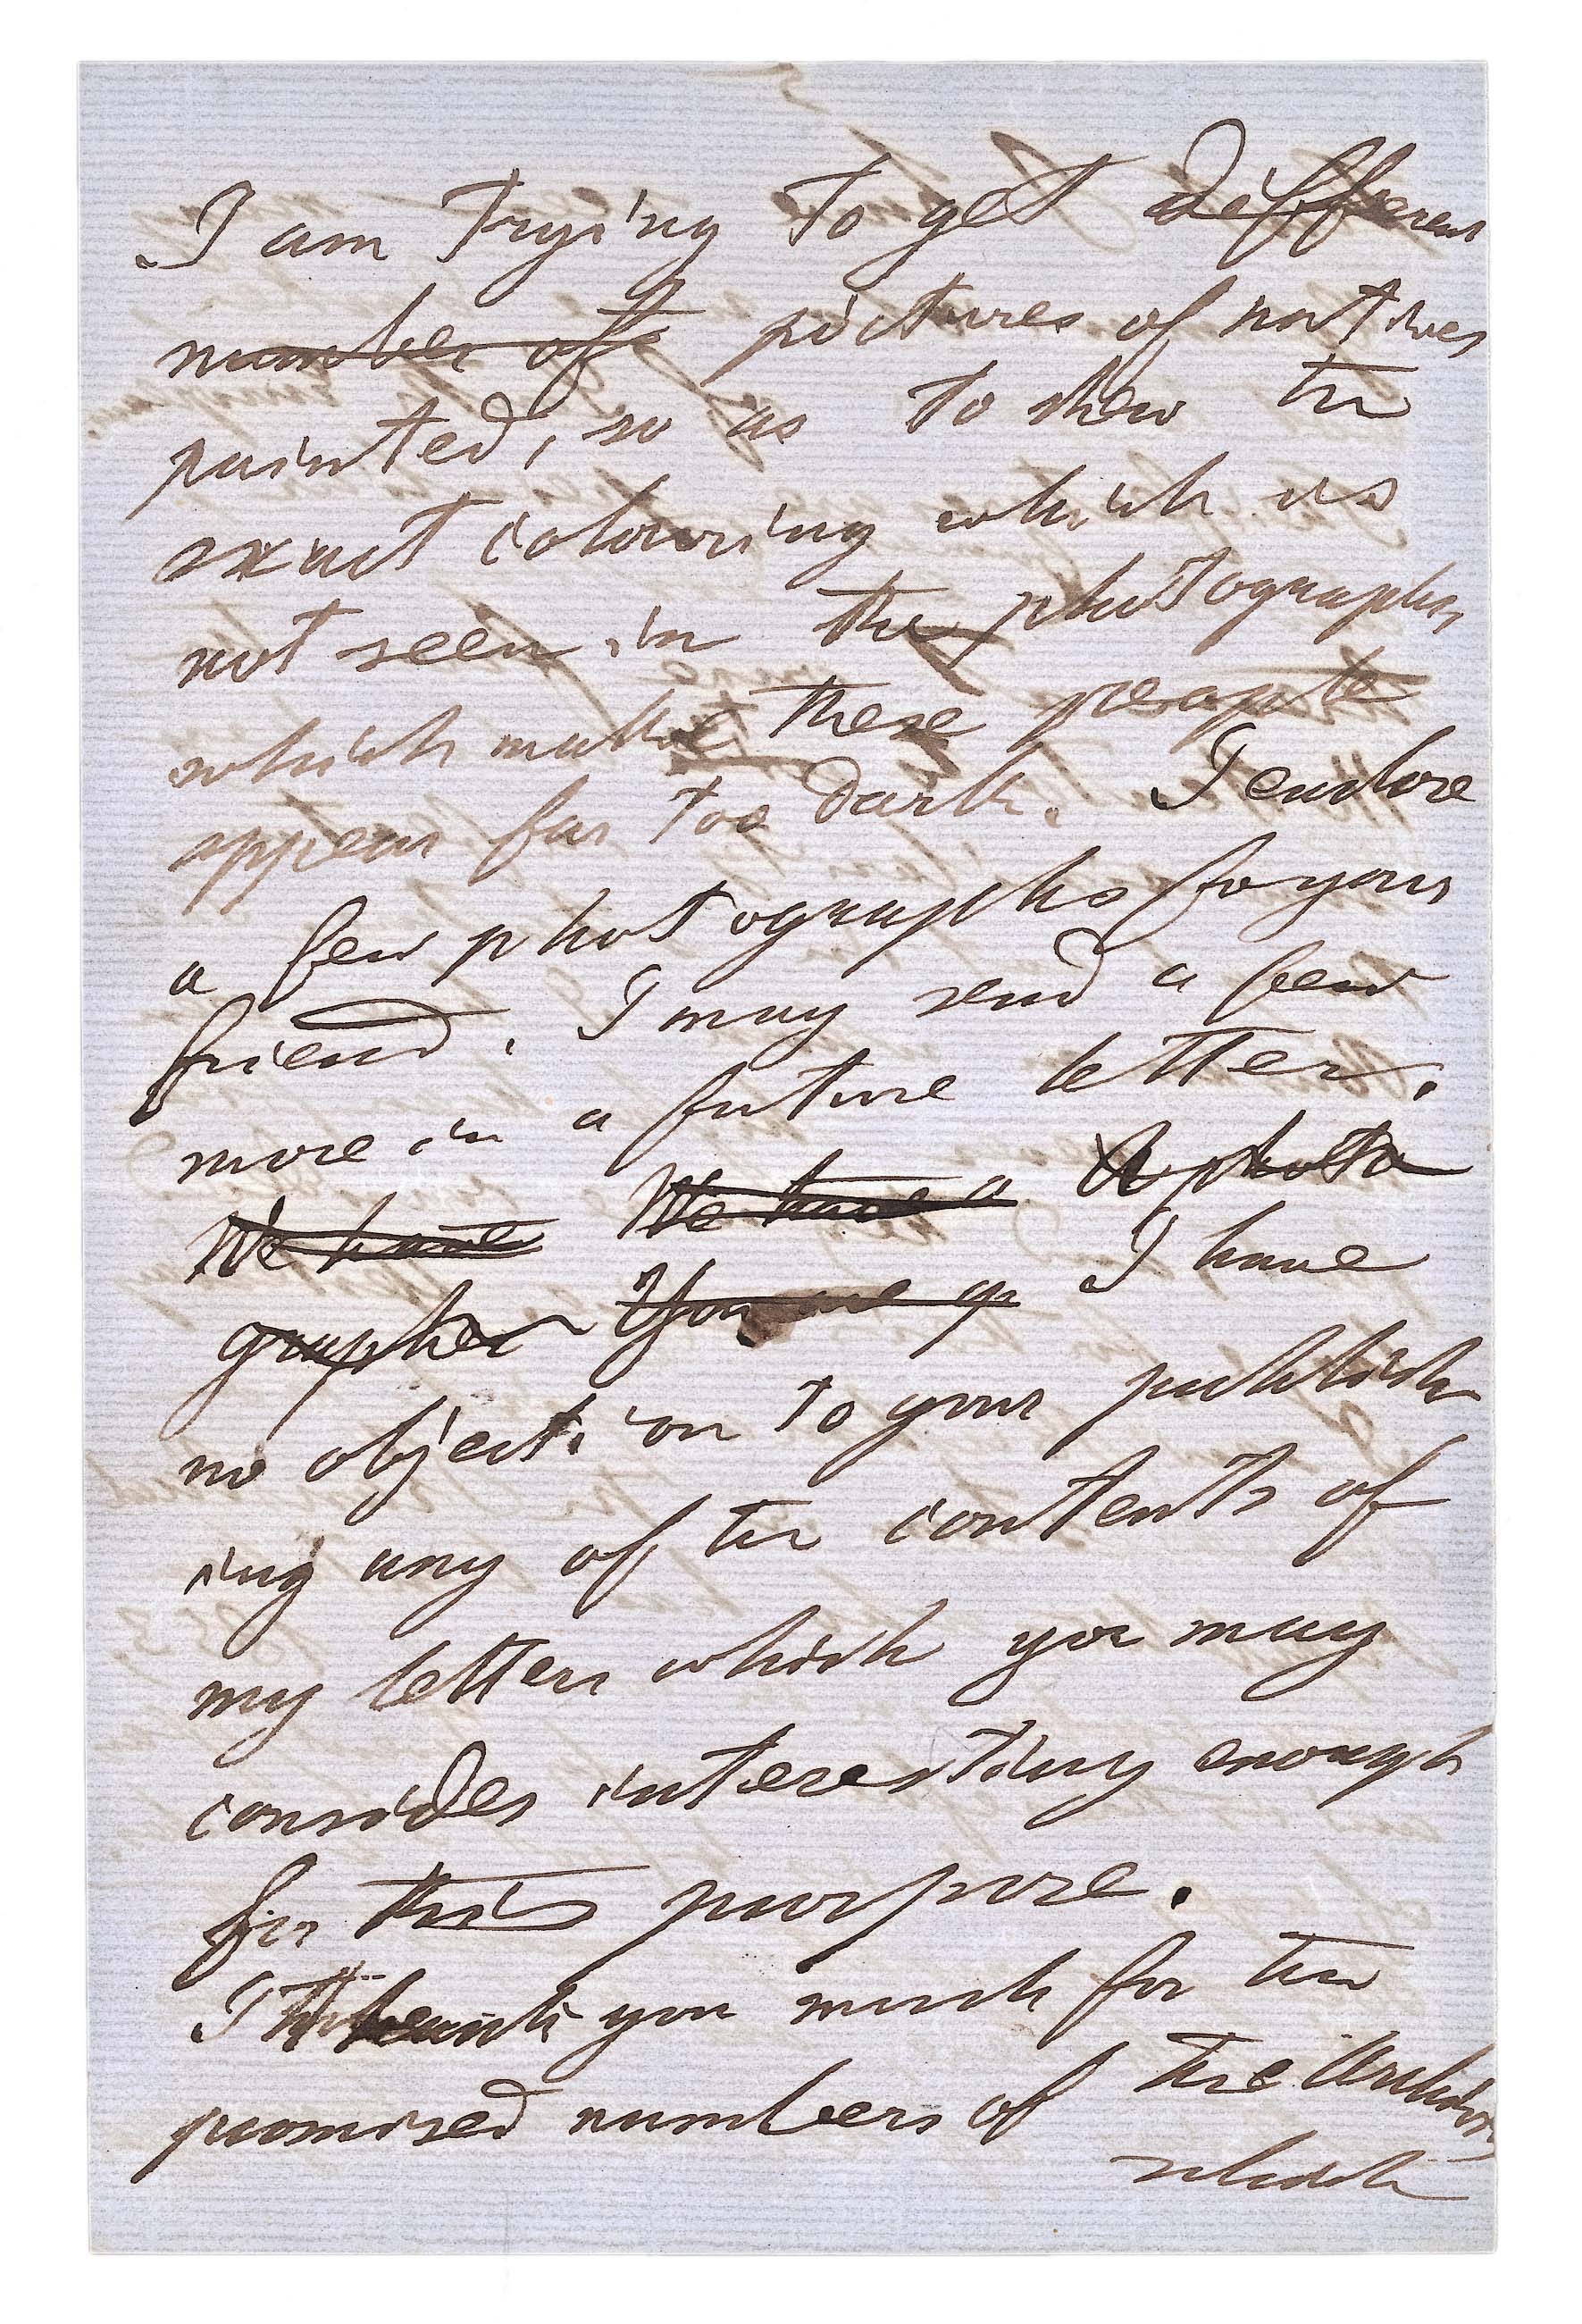 I am trying to get different
number of pictures of natives
painted, so as to shew the
exact colouring which is
not seen in the photographs,
which make these people
appear far too dark. I enclose
a few photographs for your
friend. I may send a few
more in a future letter.
We have We have a A photo
grapher You are I have
no objection to your publish
ing any of the contents of
my letters which you may
consider interesting enough
for this purpose.
I thank you much for the
promised numbers of the
which